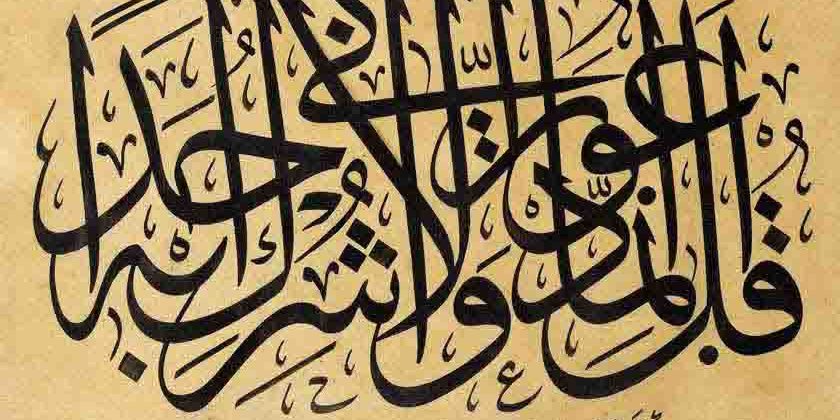 قُل إنّما أدعو ربّي ولا أُشرِكُ بهِ أحداً